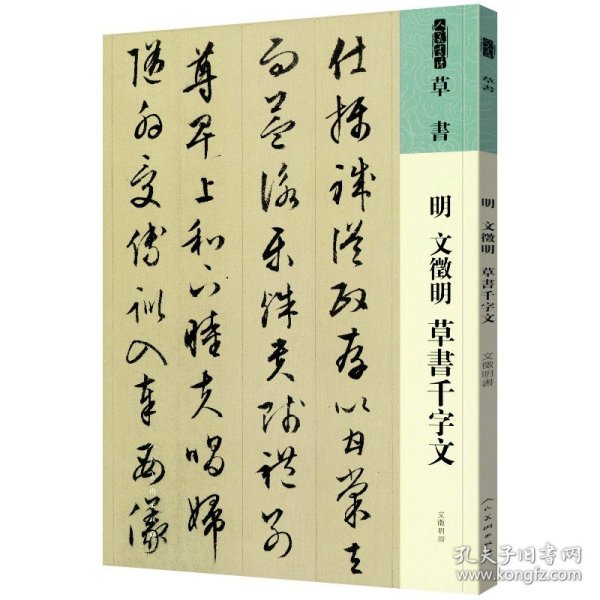 仕攝職從政存以甘棠去
而益詠樂殊貴賤禮別
尊卑上和下睦夫唱婦
隨外受傅訓入奉母儀
人美書譜
草書
明 文徵明 草書千字文
文徵明書
草書
明 文徵明 草書千字文
文徵明書
人民美術出版社
孔夫子旧书网
www.kongfz.com